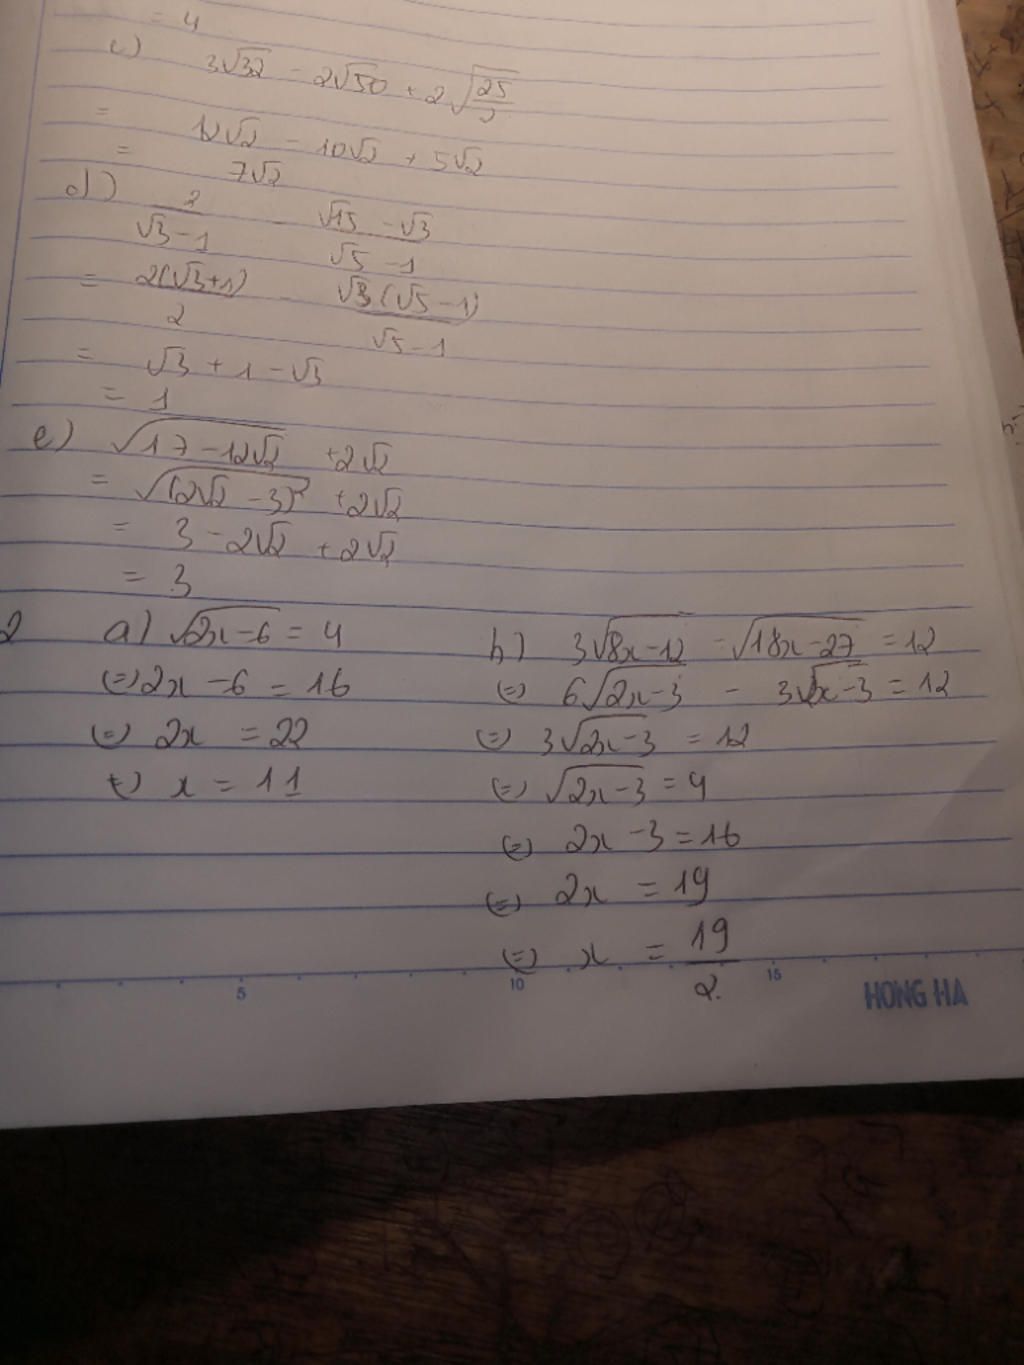 = 4
c) 3√32 - 2√50 + 2√(25/2)
= 12√2 - 10√2 + 5√2
= 7√2
d) 2/(√3-1) - (√15 - √3)/(√5 - 1)
= 2(√3+1)/2 - √3(√5-1)/(√5-1)
= √3 + 1 - √3
= 1
e) √(17-12√2) + 2√2
= √((2√2 - 3)²) + 2√2
= 3 - 2√2 + 2√2
= 3
2 a) √(2x-6) = 4
(=) 2x - 6 = 16
(=) 2x = 22
(=) x = 11
b) 3√(8x-12) - √(18x-27) = 12
(=) 6√(2x-3) - 3√(2x-3) = 12
(=) 3√(2x-3) = 12
(=) √(2x-3) = 4
(=) 2x - 3 = 16
(=) 2x = 19
(=) x = 19/2
5 10 15
HONG HA